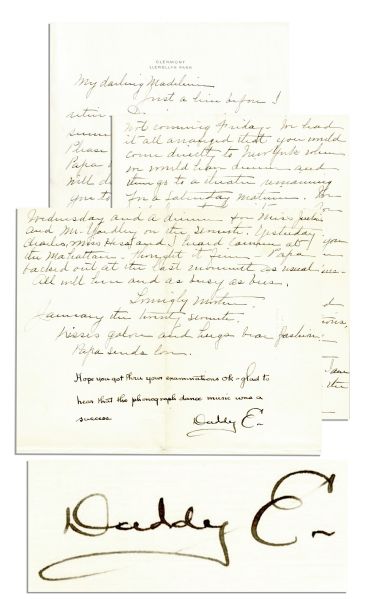 GLENMONT
LLEWELLYN PARK
My darling Madeleine
Just a line before I
Please
Papa
will
you to
Not coming Friday. We had
it all arranged that you would
come directly to New York when
we would have dinner and
things to a theatre remaining
for a Saturday matinee.
Wednesday and a dinner for Miss
and Mr. Yardley on the seventh. Yesterday
Charles, Miss Hess and I heard Carmen at
the Manhattan. thought it fine - Papa
backed out at the last moment as usual
All well here and as busy as bees.
Lovingly Mother.
January the twenty seventh
Kisses galore and hugs bear fashion.
Papa sends love.
Hope you got thru your examinations OK - glad to
hear that the phonograph dance music was a
success
Daddy E-
Daddy E-